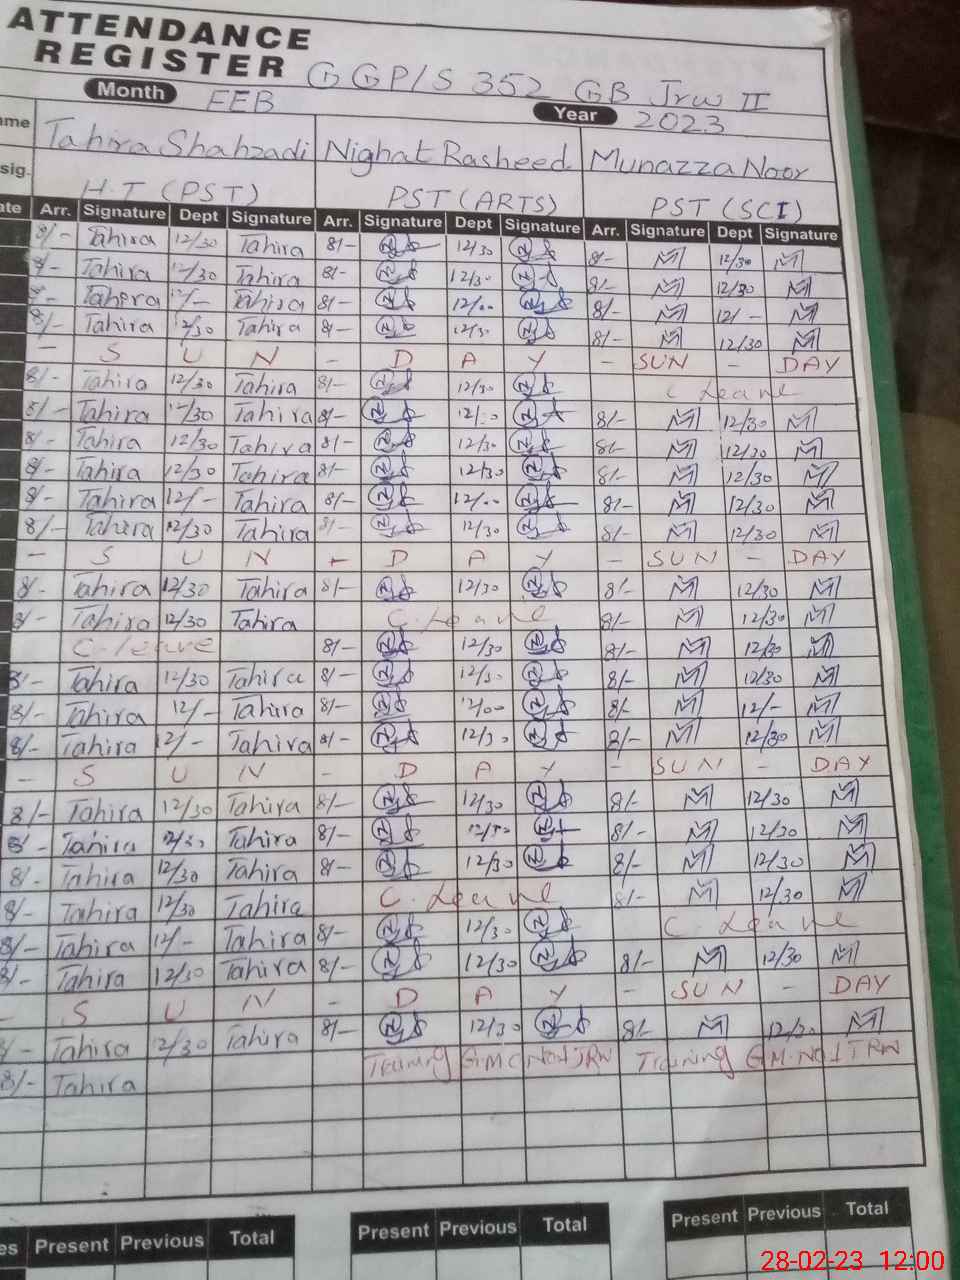 ATTENDANCE
REGISTER GGP/S 352 GB Jrw II
Month FEB Year 2023
ame Tahira Shahzadi Nighat Rasheed Munazza Noor
sig. H.T (PST) PST (ARTS) PST (SCI)
ate Arr. Signature Dept Signature Arr. Signature Dept Signature Arr. Signature Dept Signature
8/- Tahira 12/30 Tahira 8/- 12/30 8/- 12/30
8/- Tahira 12/30 Tahira 8/- 12/30 8/- 12/30
Tahira 12/- Tahira 8/- 12/00 8/- 12/-
8/- Tahira 12/30 Tahira 8/- 12/30 8/- 12/30
- S U N - D A Y - SUN - DAY
8/- Tahira 12/30 Tahira 8/- 12/30 C Leave
8/- Tahira 12/30 Tahira 8/- 8/- 12/30
8/- Tahira 12/30 Tahira 8/- 12/30 8/- 12/30
8/- Tahira 12/30 Tahira 8/- 12/30 8/- 12/30
8/- Tahira 12/- Tahira 8/- 12/00 8/- 12/30
8/- Tahira 12/30 Tahira 8/- 12/30 8/- 12/30
- S U N - D A Y - SUN - DAY
8/- Tahira 12/30 Tahira 8/- 12/30 8/- 12/30
8/- Tahira 12/30 Tahira C. Leave 8/- 12/30
C. leave 8/- 12/30 8/- 12/30
8/- Tahira 12/30 Tahira 8/- 12/30 8/- 12/30
8/- Tahira 12/- Tahira 8/- 12/00 8/- 12/-
8/- Tahira 12/- Tahira 8/- 12/30 8/- 12/30
- S U N - D A Y - SUN - DAY
8/- Tahira 12/30 Tahira 8/- 12/30 8/- 12/30
8/- Tahira 12/30 Tahira 8/- 12/30 8/- 12/30
8/- Tahira 12/30 Tahira 8/- 12/30 8/- 12/30
8/- Tahira 12/30 Tahira C. Leave 8/- 12/30
8/- Tahira 12/- Tahira 8/- 12/30 C. Leave
8/- Tahira 12/30 Tahira 8/- 12/30 8/- 12/30
- S U N - D A Y - SUN - DAY
8/- Tahira 12/30 Tahira 8/- 12/30 8/- 12/30
8/- Tahira Training G.M.C No 1 JRW Training G.M. No.1 JRW
es Present Previous Total Present Previous Total Present Previous Total
28-02-23 12:00